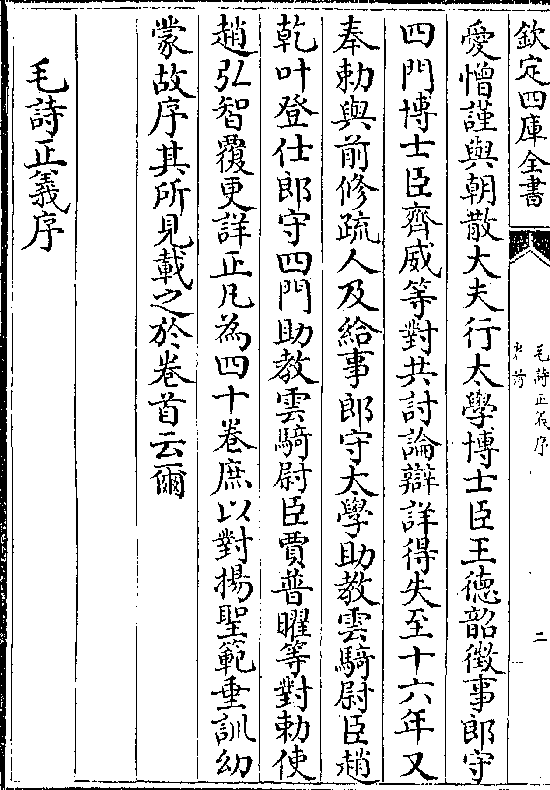 欽定四庫全書
毛詩正義序
二
愛憎謹與朝散大夫行太學博士臣王德韶徴事郎守
四門博士臣齊威等對共討論辯詳得失至十六年又
奉勅與前修疏人及給事郎守太學助教雲騎尉臣趙
乾叶登仕郎守四門助教雲騎尉臣賈普曜等對勅使
趙弘智覆更詳正凡為四十卷庶以對揚聖範垂訓幼
蒙故序其所見載之於卷首云爾
毛詩正義序